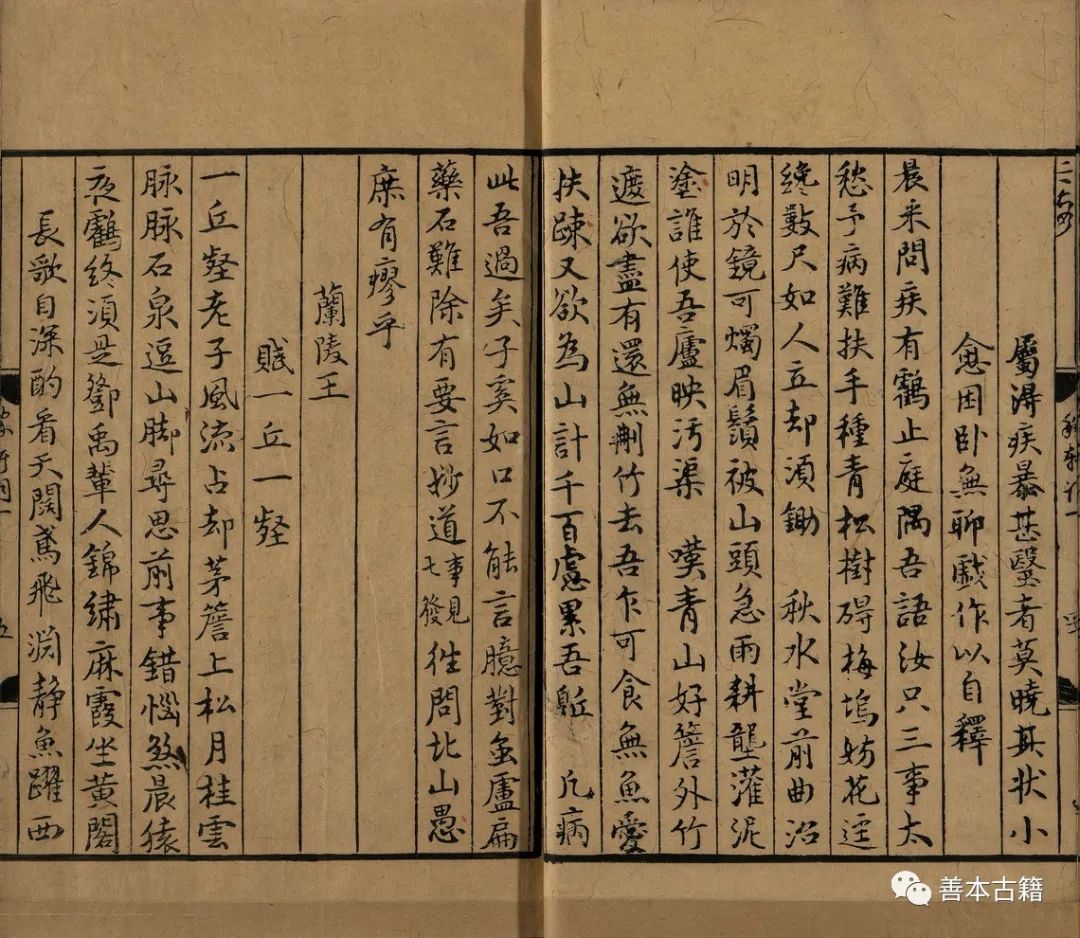 屬得疾暴甚醫者莫曉其状小
愈困卧無聊戲作以自釋
晨来問疾有鶴止庭隅吾語汝只三事太
愁予病難扶手種青松樹碍梅塢妨花迳
纔數尺如人立却湏鋤 秋水堂前曲沼
明於鏡可燭眉鬚被山頭急雨耕壟灌泥
塗誰使吾廬映污渠 嘆青山好簷外竹
遮欲盡有還無刪竹去吾乍可食無魚愛
扶踈又欲為山計千百慮累吾軀 凡病
此吾過矣子奚如口不能言臆對虽盧扁
藥石難除有要言玅道事見七發往問北山愚
庶有瘳乎
蘭陵王
賦一丘一壑
一丘壑老子風流占却茅簷上松月桂雲
脉脉石泉逗山脚尋思前事錯惱煞晨猿
夜鶴終湏是鄧禹輩人錦绣麻霞坐黄閣
長歌自深酌看天闊鳶飛淵静魚躍西
善本古籍